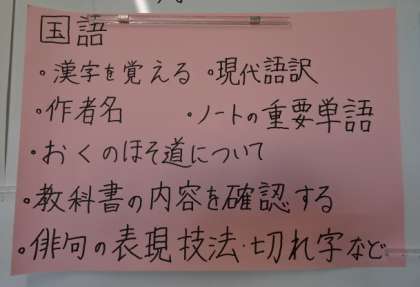 国語
・漢字を覚える ・現代語訳
・作者名 ・ノートの重要単語
・おくのほそ道について
・教科書の内容を確認する
・俳句の表現技法・切れ字など